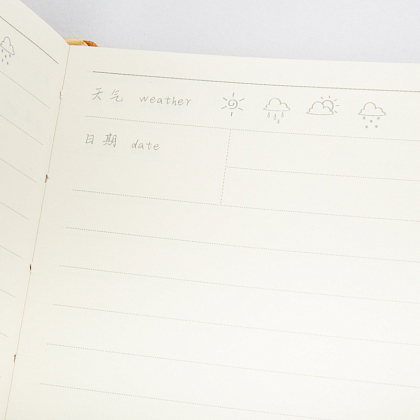 天气 weather
日期 date